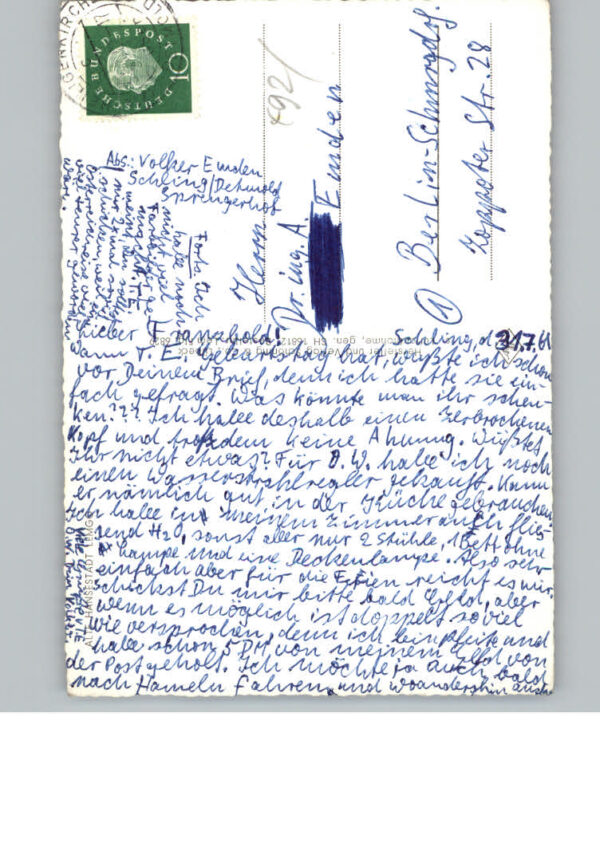 DEUTSCHE BUNDESPOST
10
892/
Abs.: Volker Emden
Schling/Detmold
Sprengerhof
Herrn
Dr. ing. A. Emden
① Berlin-Schmargdf.
Zoppoter Str. 28
Schling, d. 31.7.61
Lieber Franzhold!
Wann T. E. Geburtstag hat, wußte ich schon
vor Deinem Brief, denn ich hatte sie ein-
fach gefragt. Was könnte man ihr schen-
ken??? Ich habe deshalb einen zerbrochenen
Kopf und trotzdem keine Ahnung. Wüßtet
Ihr nicht etwas? Für O. W. habe ich noch
einen Wasserstrahlregler gekauft. Kann
er nämlich gut in der Küche gebrauchen.
Ich habe in meinem Zimmer auch flie-
send H₂O, sonst aber nur 2 Stühle, 1 Bett ohne
Lampe und eine Deckenlampe. Also sehr
einfach aber für die Ferien reicht es mir.
Schickst Du mir bitte bald Geld, aber
wenn es möglich ist doppelt soviel
wie versprochen, denn ich bin pleite und
habe schon 5 DM von meinem Geld von
der Post geholt. Ich möchte ja auch bald
nach Hameln fahren und woandershin auch.
Viele Grüße
ALTE HANSESTADT LEMGO